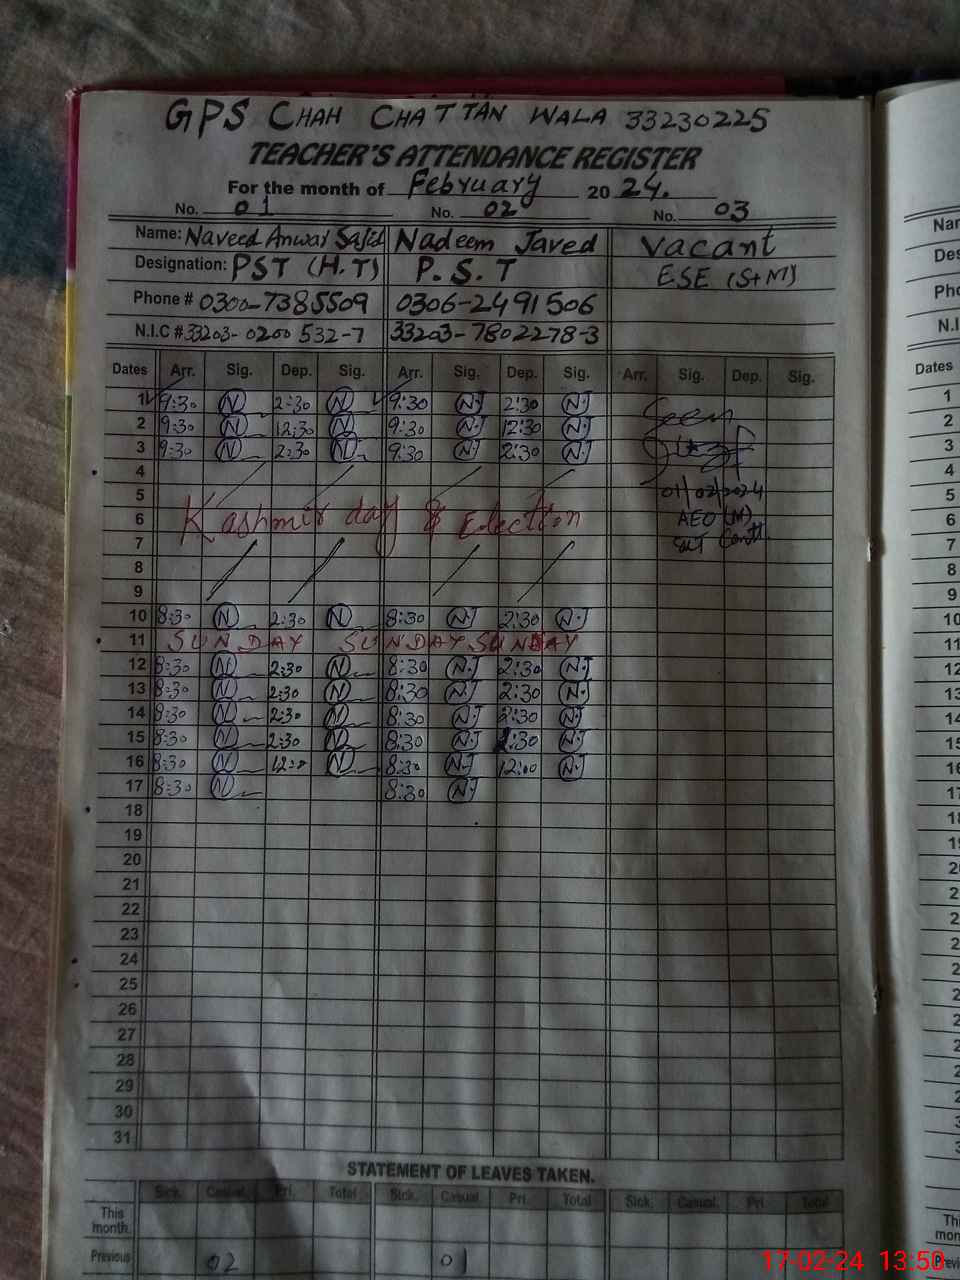 GPS CHAH CHATTAN WALA 33230225
TEACHER'S ATTENDANCE REGISTER
For the month of February 2024.
No. 01 No. 02 No. 03
Name: Naveed Anwar Sajid Nadeem Javed Vacant
Designation: PST (H.T) P.S.T ESE (S+M)
Phone # 0300-7385509 0306-2491506
N.I.C # 33203-0200532-7 33203-7802278-3
Dates Arr. Sig. Dep. Sig. Arr. Sig. Dep. Sig. Arr. Sig. Dep. Sig.
1 9:30 N 2:30 N 9:30 N.J 2:30 N.J Seen
2 9:30 N 12:30 N 9:30 N.J 12:30 N.J
3 9:30 N 2:30 N 9:30 N.J 2:30 N.J
4
5 01/02/2024
6 Kashmir day & Election AEO (M)
7
8
9
10 8:30 N 2:30 N 8:30 N.J 2:30 N.J
11 SUNDAY SUNDAY SUNDAY
12 8:30 N 2:30 N 8:30 N.J 2:30 N.J
13 8:30 N 2:30 N 8:30 N.J 2:30 N.J
14 8:30 N 2:30 N 8:30 N.J 2:30 N.J
15 8:30 N 2:30 N 8:30 N.J 2:30 N.J
16 8:30 N 12:0 N 8:30 N.J 12:00 N.J
17 8:30 N 8:30 N.J
18
19
20
21
22
23
24
25
26
27
28
29
30
31
STATEMENT OF LEAVES TAKEN.
Sick. Casual. Pri. Total Sick. Casual. Pri. Total Sick. Casual. Pri Total
This month.
Previous 02 01
17-02-24 13:50